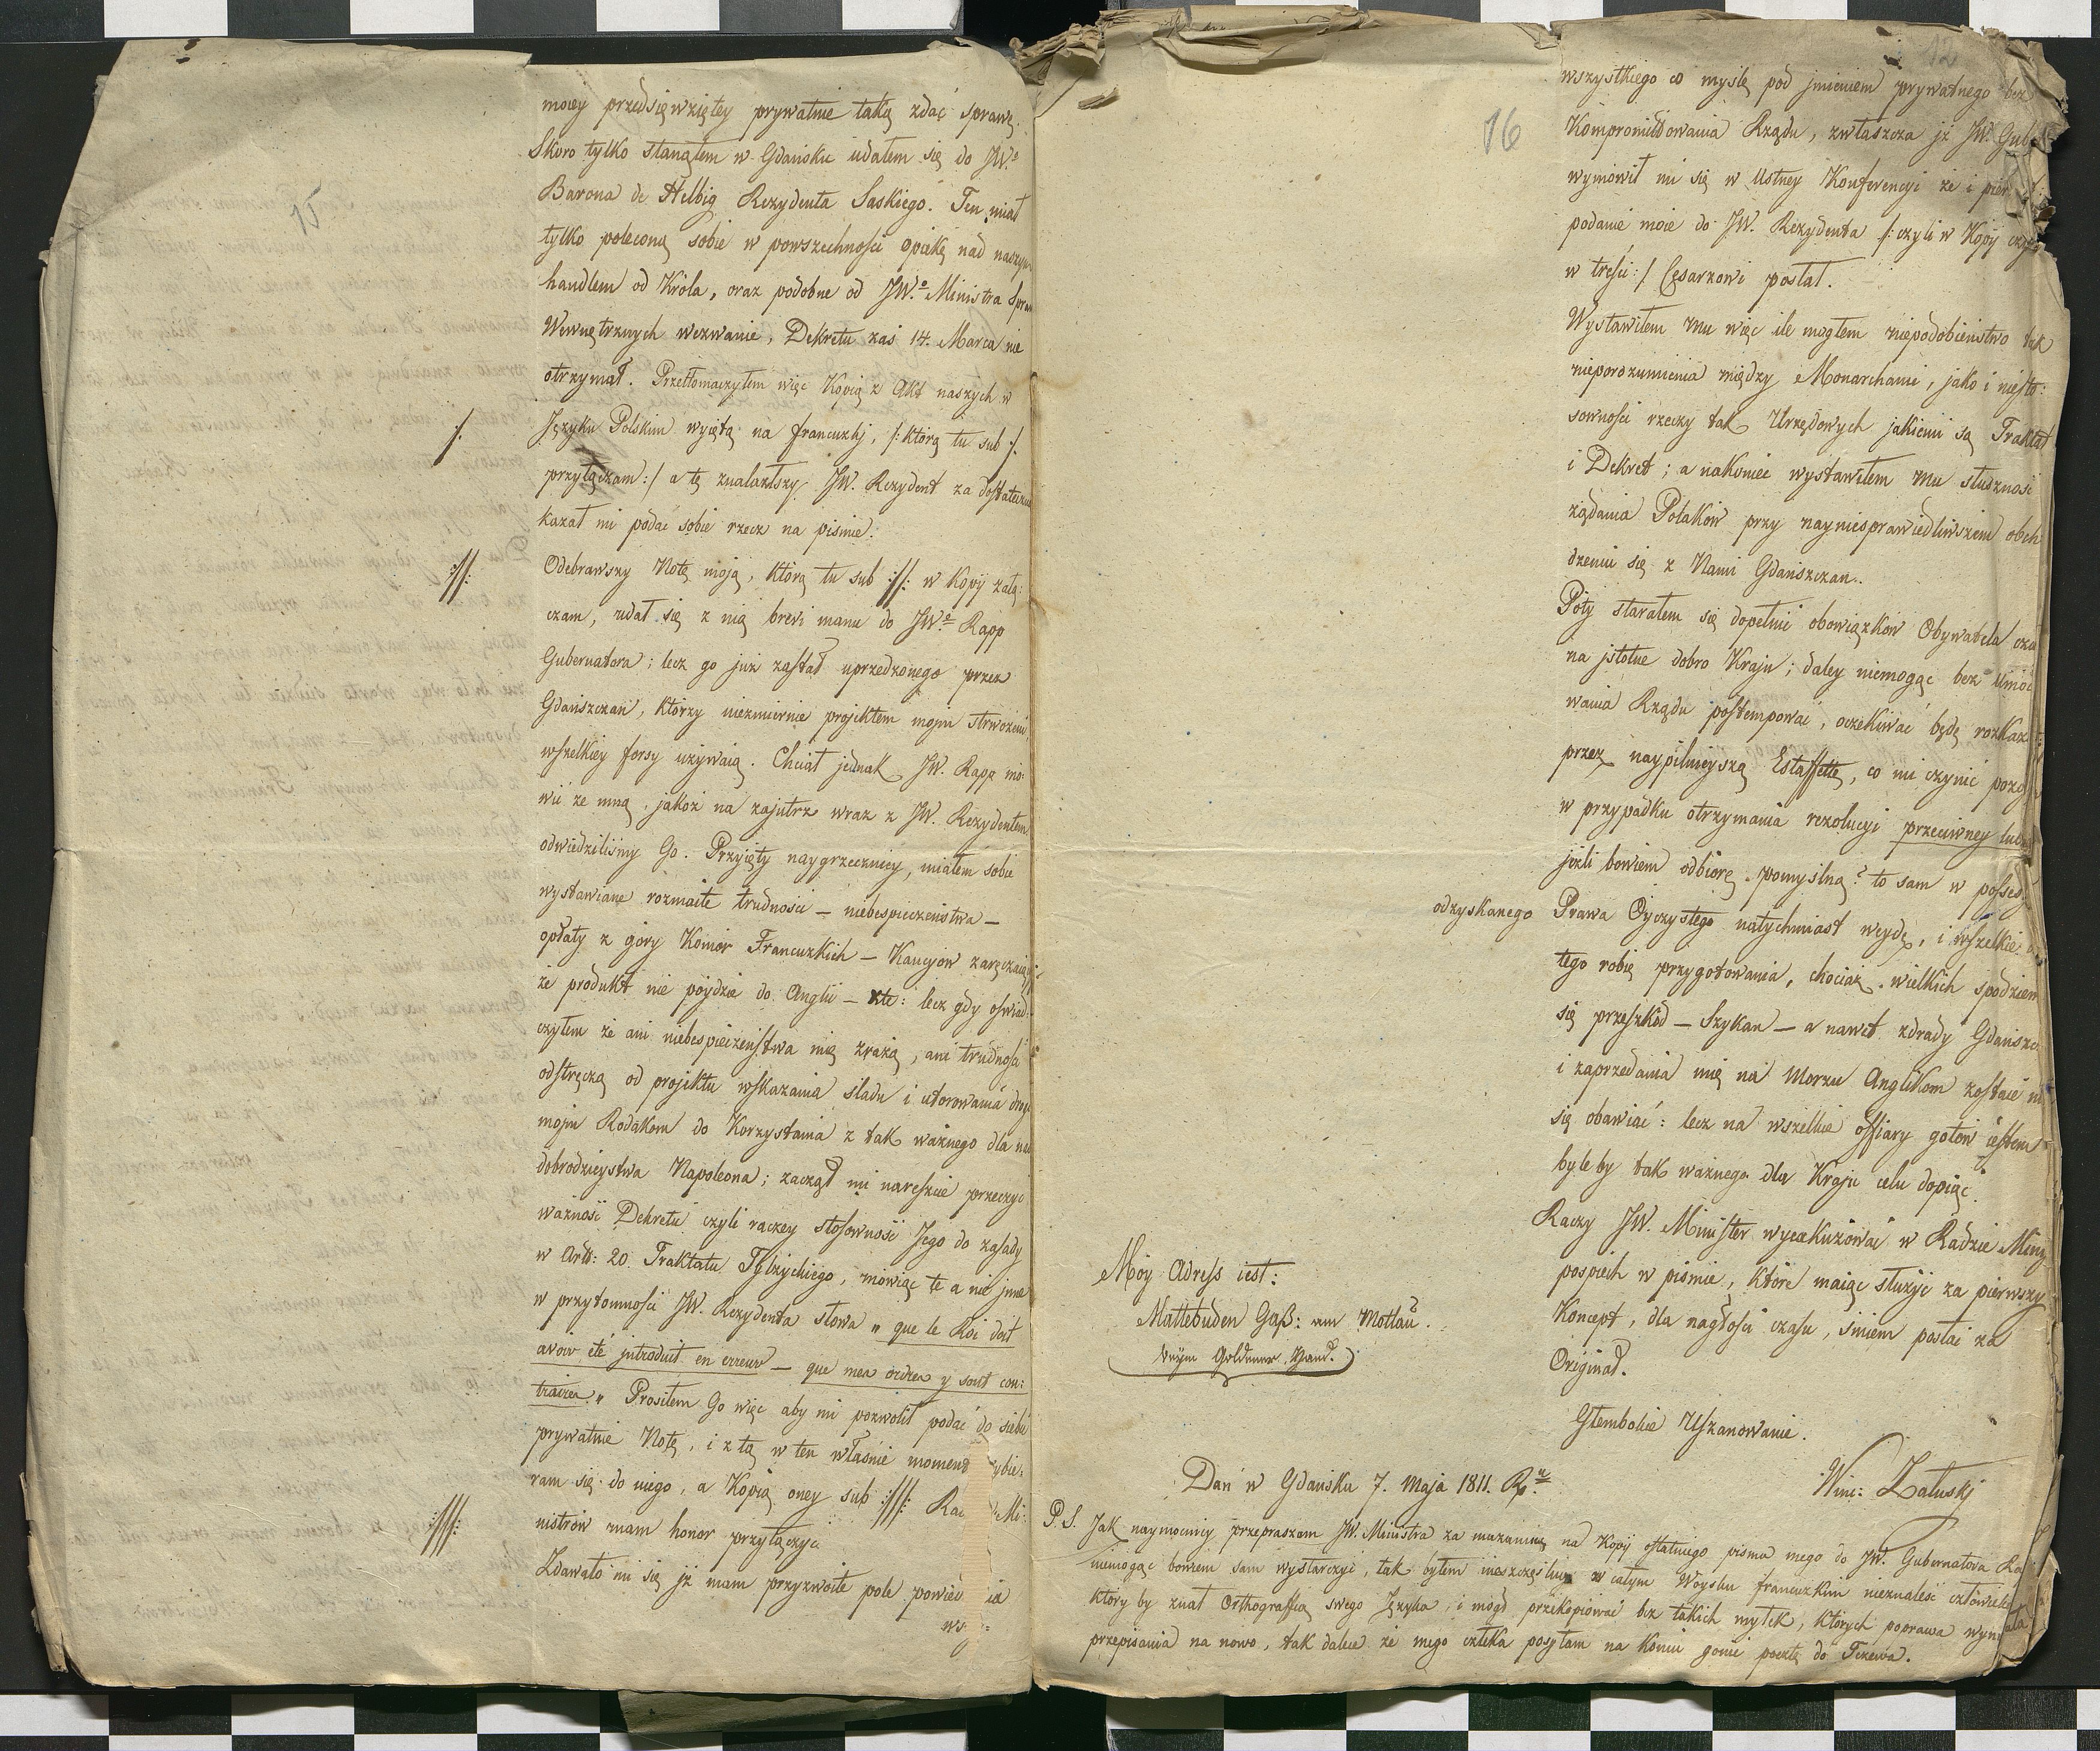 15
mocy przedsięwziętey prywatnie taką zdać sprawę.
Skoro tylko stanąłem w Gdańsku udałem się do JWo
Barona de Helbig Rezydenta Saskiego. Ten miał
tylko poleconą sobie w powszechności opiekę nad naszym
handlem od Króla, oraz podobne od JWo Ministra Spraw
Wewnętrznych wezwanie, Dekretu zaś 14. Marca nie
otrzymał. Przetłomaczyłem więc Kopią z Akt naszych w
Języku Polskim wyiętą na francuzkj, /:którą tu sub ·/.
·/.
przyłączam:/ a tę znalazłszy JW. Rezydent za dostateczną
kazał mi podać sobie rzecz na pismie.
Odebrawszy Notę moją, którą tu sub ://: w Kopij załą:
://:
czam, udał się z nią brevi manu do JWo Rapp
Gubernatora; lecz go już zastał uprzedzonego przez
Gdańszczan, którzy niezmiernie projektem moim strwożeni
wszelkiey forsy używaią. Chciał jednak JW. Rapp mó:
wić ze mną, jakoż na zajutrz wraz z JW. Rezydentem
odwiedziliśmy Go. Przyięty naygrzeczniey, miałem sobie
wystawiane rozmaite trudności – niebespieczeństwa –
opłaty z gory Komór Francuzkich – Kaucyów zaręczaiących
że produkt nie póydzie do Anglii – etc: lecz gdy oświad:
czyłem że ani niebespieczeństwa mię zrażą, ani trudności
odstręczą od projektu wskazania śladu i utorowania drogi
moim Rodakom do Korzystania z tak ważnego dla nas
dobrodzieystwa Napoleona; zaczął mi nareszcie przeczyć
ważność Dekretu czyli raczey stosowność Jego do zasady
w Art: 20. Traktatu Tylżyckiego, mówiąc te a nie jnne
w przytomności JW. Rezydenta słowa „ que le Roi doit
avoir été introduit en erreur – que mes ordres y sont con:
traires.„ Prosiłem Go więc aby mi pozwolił podać do siebie
prywatnie Notę, i z tą w ten właśnie moment wybie:
ram się do niego, a Kopią oney sub :///: Mi:
:///:
nistrów mam honor przyłączyć.
Zdawało mi się jż mam przyzwoite pole
16
12
wszystkiego co myślę pod jmieniem prywatnego bez
Kompromittowania Rządu, zwłaszcza jż JW. Gub
wymówił mi się w Ustney Konferencyi że i
podanie moie do JW. Rezydenta /: czyli w Kopij czyli
w treści:/ Cesarzowi posłał.
Wystawiłem mu więc ile mogłem niepodobieństwo tak
nieporozumienia między Monarchami, jako i niesto:
sowności rzeczy tak Urzędowych jakiemi są Traktat
i Dekret; a nakoniec wystawiłem mu słuszność
żądania Polaków przy nayniesprawiedliwszem obch
dzeniu się z Nami Gdańszczan.
Póty starałem się dopełnić obowiązków Obywatela
na jstotne dobro Kraju; daley niemogąc bez Umoc
wania Rządu postempować, oczekiwać będę rozkazu
przez naypilnieyszą Estaffettę, co mi czynić
w przypadku otrzymania rezolucyi przeciwney
jeżli bowiem odbiorę pomyślną? to sam w posses
odzyskanego Prawa Oyczystego natychmiast weydę, i wszelkie
tego robię przygotowania, chociaż wielkich spodziewam
się przeszkód – Szykan – a nawet zdrady Gdańszcz
i zaprzedania mię na Morzu Anglikom zostaie mi
się obawiać: lecz na wszelkie offiary gotów iestem
byleby tak ważnego dla Kraju celu dopiąć.
Raczy JW. Minister wyexkuzować w Radzie
pośpiech w piśmie, które maiąc służyć za pierwszy
Koncept, dla nagłości czasu, śmiem posłać za
Originał.
Głembokie Uszanowanie.
Moy Adress iest:
Mattebuden Gaß: am Mottlau.
beym Goldenen Hand.
Dań w Gdańsku 7. Maja 1811. Ru
Winc: Załuskj
P.S. Jak naymocniey przepraszam JW. Ministra za mazaninę na Kopij ostatniego pisma mego do JW. Gubernatora
niemogąc bowiem sam wystarczyć, tak byłem nieszczęśliwy w całym Woysku francuzkim nieznaleść człowieka
któryby znał Orthograffią swego Języka, i mógł przekopiować bez takich myłek, których poprawa
przepisania na nowo, tak dalece że mego człeka posyłam na koniu gonić pocztę do Tczewa.